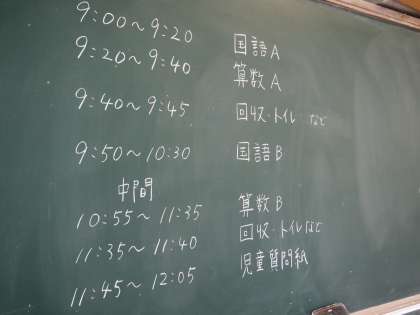 9:00～9:20 国語A
9:20～9:40 算数A
9:40～9:45 回収・トイレ など
9:50～10:30 国語B
中間
10:55～11:35 算数B
11:35～11:40 回収・トイレなど
11:45～12:05 児童質問紙